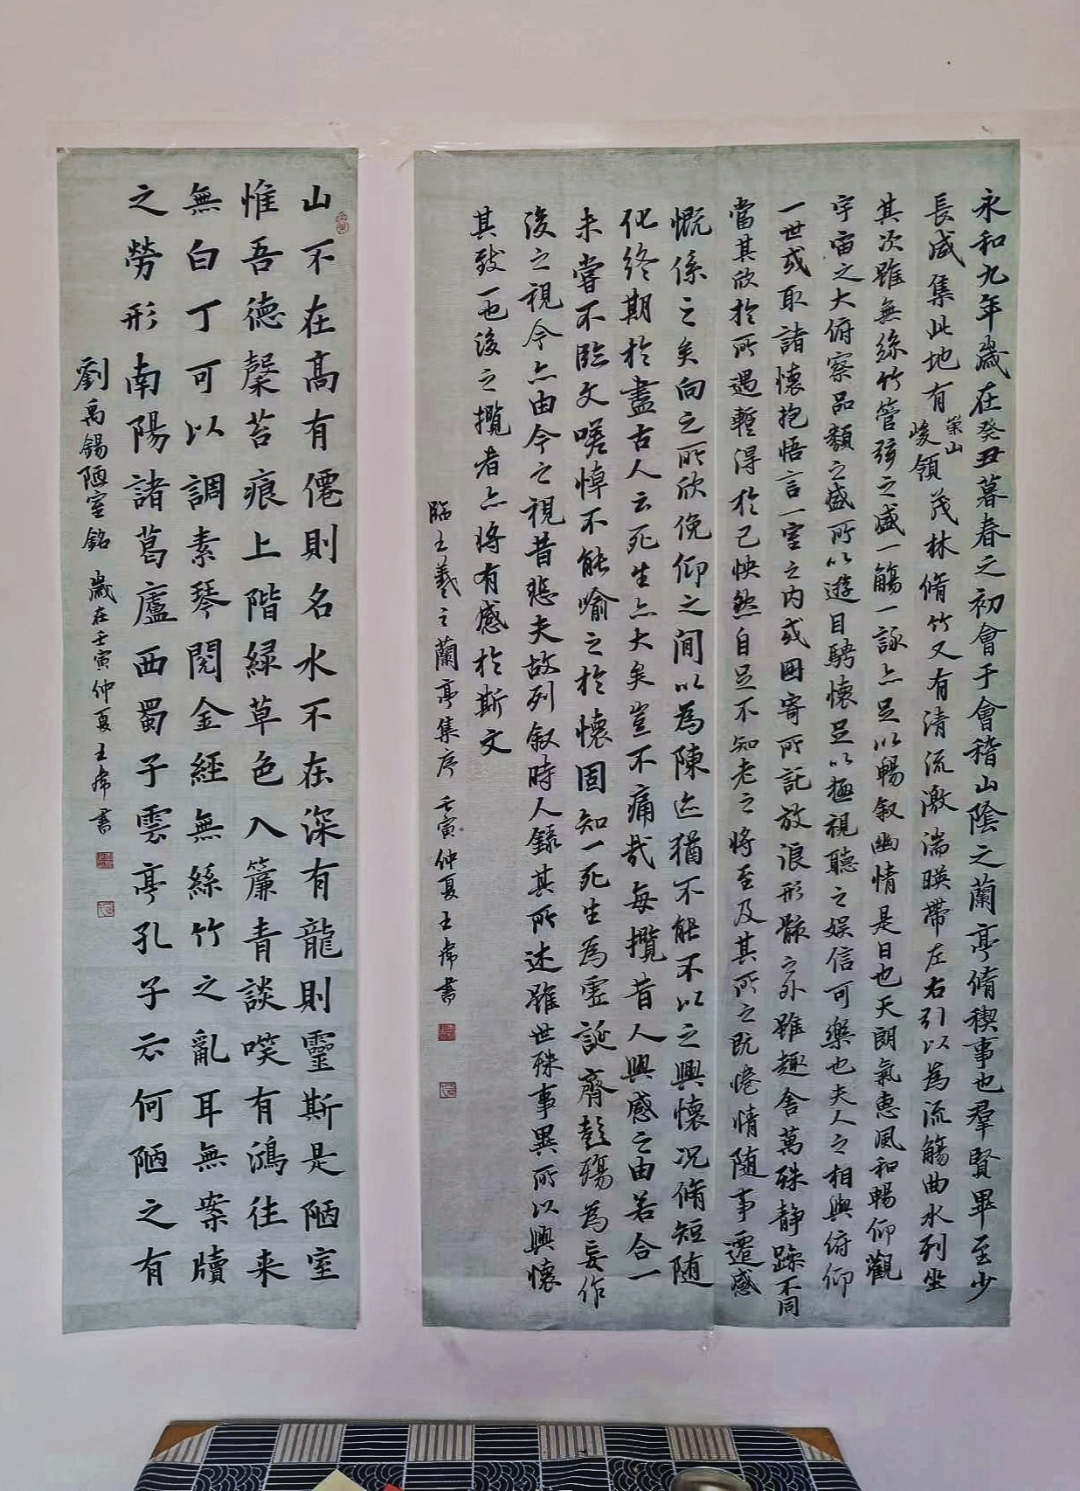 永和九年歲在癸丑暮春之初會于會稽山陰之蘭亭脩稧事也羣賢畢至少
長咸集此地有崇山峻領茂林脩竹又有清流激湍暎帶左右引以為流觴曲水列坐
其次雖無絲竹管弦之盛一觴一詠亦足以暢叙幽情是日也天朗氣惠風和暢仰觀
宇宙之大俯察品類之盛所以遊目騁懷足以極視聽之娛信可樂也夫人之相與俯仰
一世或取諸懷抱悟言一室之內或因寄所託放浪形骸之外雖趣舍萬殊静躁不同
當其欣於所遇暫得於己怏然自足不知老之將至及其所之既惓情隨事遷感
慨係之矣向之所欣俛仰之間以為陳迹猶不能不以之興懷況脩短随
化終期於盡古人云死生亦大矣豈不痛哉每攬昔人興感之由若合一
未嘗不臨文嗟悼不能喻之於懷固知一死生為虛誕齊彭殤為妄作
後之視今亦由今之視昔悲夫故列叙時人錄其所述雖世殊事異所以興懷
其致一也後之攬者亦將有感於斯文
臨王羲之蘭亭集序 壬寅仲夏王書
山不在高有僊則名水不在深有龍則靈斯是陋室
惟吾德馨苔痕上階緑草色入簾青談笑有鴻往来
無白丁可以調素琴閱金經無絲竹之亂耳無案牘
之勞形南陽諸葛廬西蜀子雲亭孔子云何陋之有
劉禹錫陋室銘 歲在壬寅仲夏王書